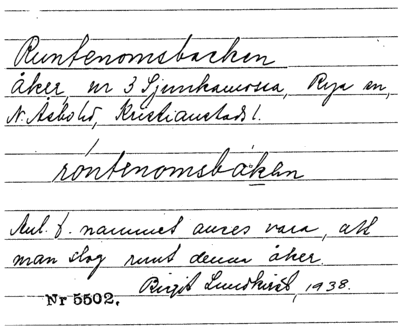 Runtenomsbacken
åker, nr 3 Ljunkamossa, Rya sn,
N. Åsbo hd, Kristianstads l.
róntenomsbákan
Anl. t. namnet anses vara, att
man slog runt denna åker.
Birgit Lundkvist, 1938.
Nr 5502.